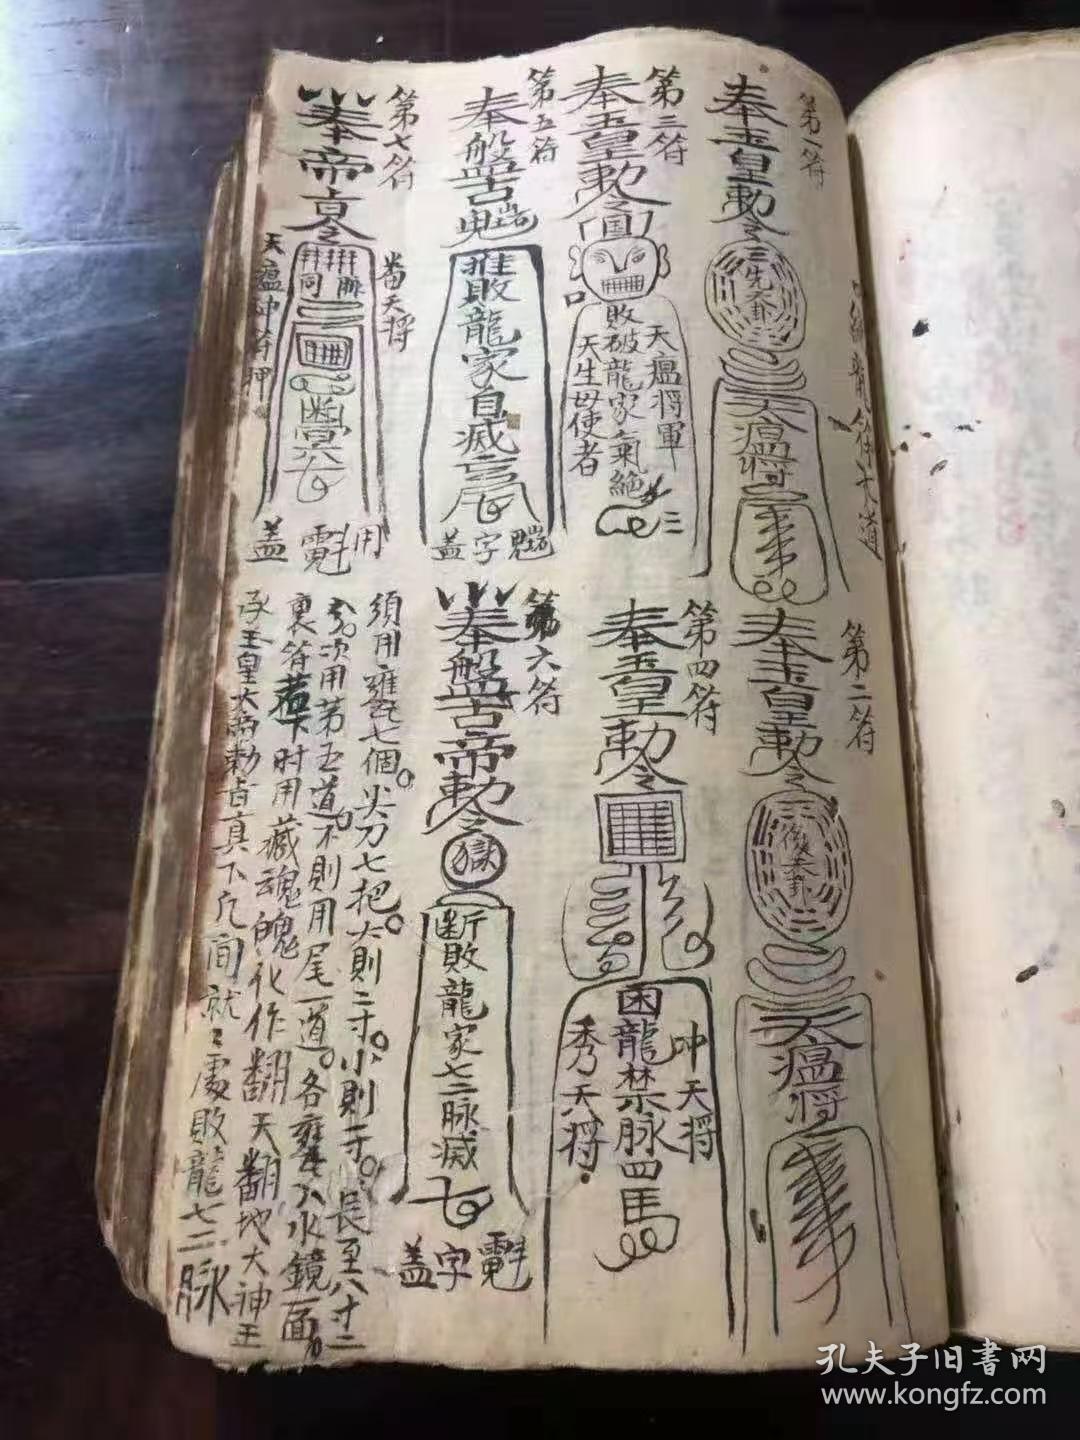 第一符
奉玉皇勅令
先天卦
天瘟将
第二符
奉玉皇勅令
後天卦
天瘟将
第三符
奉玉皇勅令
天瘟将軍
敗破龍家氣絶
天生母使者
第四符
奉玉皇勅令
冲天将
困龍禁脉四馬
秀天将
第五符
奉盤古
敗龍家自滅亡
盖字
第六符
奉盤古帝勅令
獄
断敗龍家七十二脉滅
盖字
第七符
奉帝旨令
番天将
盖
用
須用甕七個尖刀七把大則二寸小則一寸長至八寸二
次用第五道不則用尾一道各甕入水鏡一面
裏符下时用藏魂魄化作翻天翻地大神王
承玉皇大帝勅旨真下凡間就處敗龍七十二脉
孔夫子旧書网
www.kongfz.com